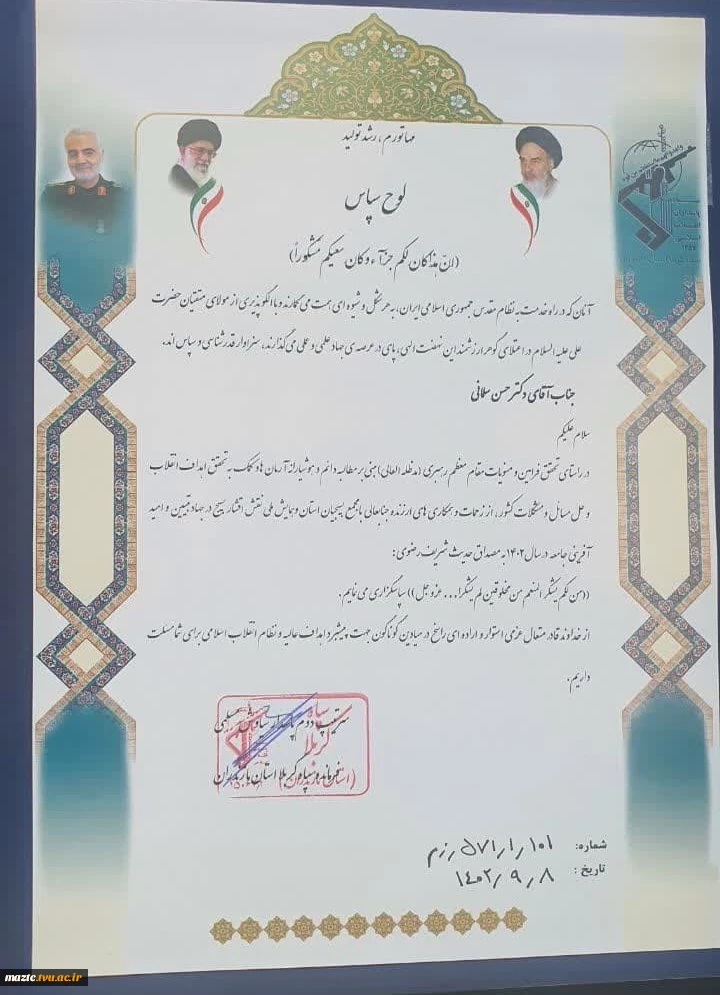 مهاتورم ، رشد تولید
لوح سپاس
(انّ هذا کان لکم جزآء و کان سعیکم مشکوراً)
آنان که در راه خدمت به نظام مقدس جمهوری اسلامی ایران، به هر شکل و شیوه ای همت می گمارند و با الگو پذیری از مولای متقیان حضرت
علی علیه السلام در اعتلای گوهر ارزشمند این نهضت الهی، پای در عرصه ی جهاد علمی و عملی می گذارند، سزاوار قدرشناسی و سپاس اند.
جناب آقای دکتر حسن سلمانی
سلام علیکم
در راستای تحقق فرامین و منویات مقام معظم رهبری (مدظله العالی) مبنی بر مطالبه دائم و هوشیارانه آرمان ها و کمک به تحقق اهداف انقلاب
و حل مسائل و مشکلات کشور ، از زحمات و همکاری های ارزنده جنابعالی با مجمع بسیجیان استان و همایش ملی نقش اقشار بسیج در جهاد تبیین و امید
آفرینی جامعه در سال ۱۴۰۲ به مصداق حدیث شریف رضوی :
((من لم یشکر المنعم من مخلوقین لم یشکرا... عزوجل)) سپاسگزاری می نمایم .
از خداوند قادر متعال عزمی استوار و اراده ای راسخ در میادین گوناگون جهت پیشبرد اهداف عالیه و نظام انقلاب اسلامی برای شما مسئلت
داریم .
سرتیپ دوم پاسدار سیاوش مسلمی
فرمانده سپاه کربلا استان مازندران
شماره: ۱۰۱/۱/۵۷۱/رزم
تاریخ : ۱۴۰۲/۹/۸
maztc.tvu.ac.ir